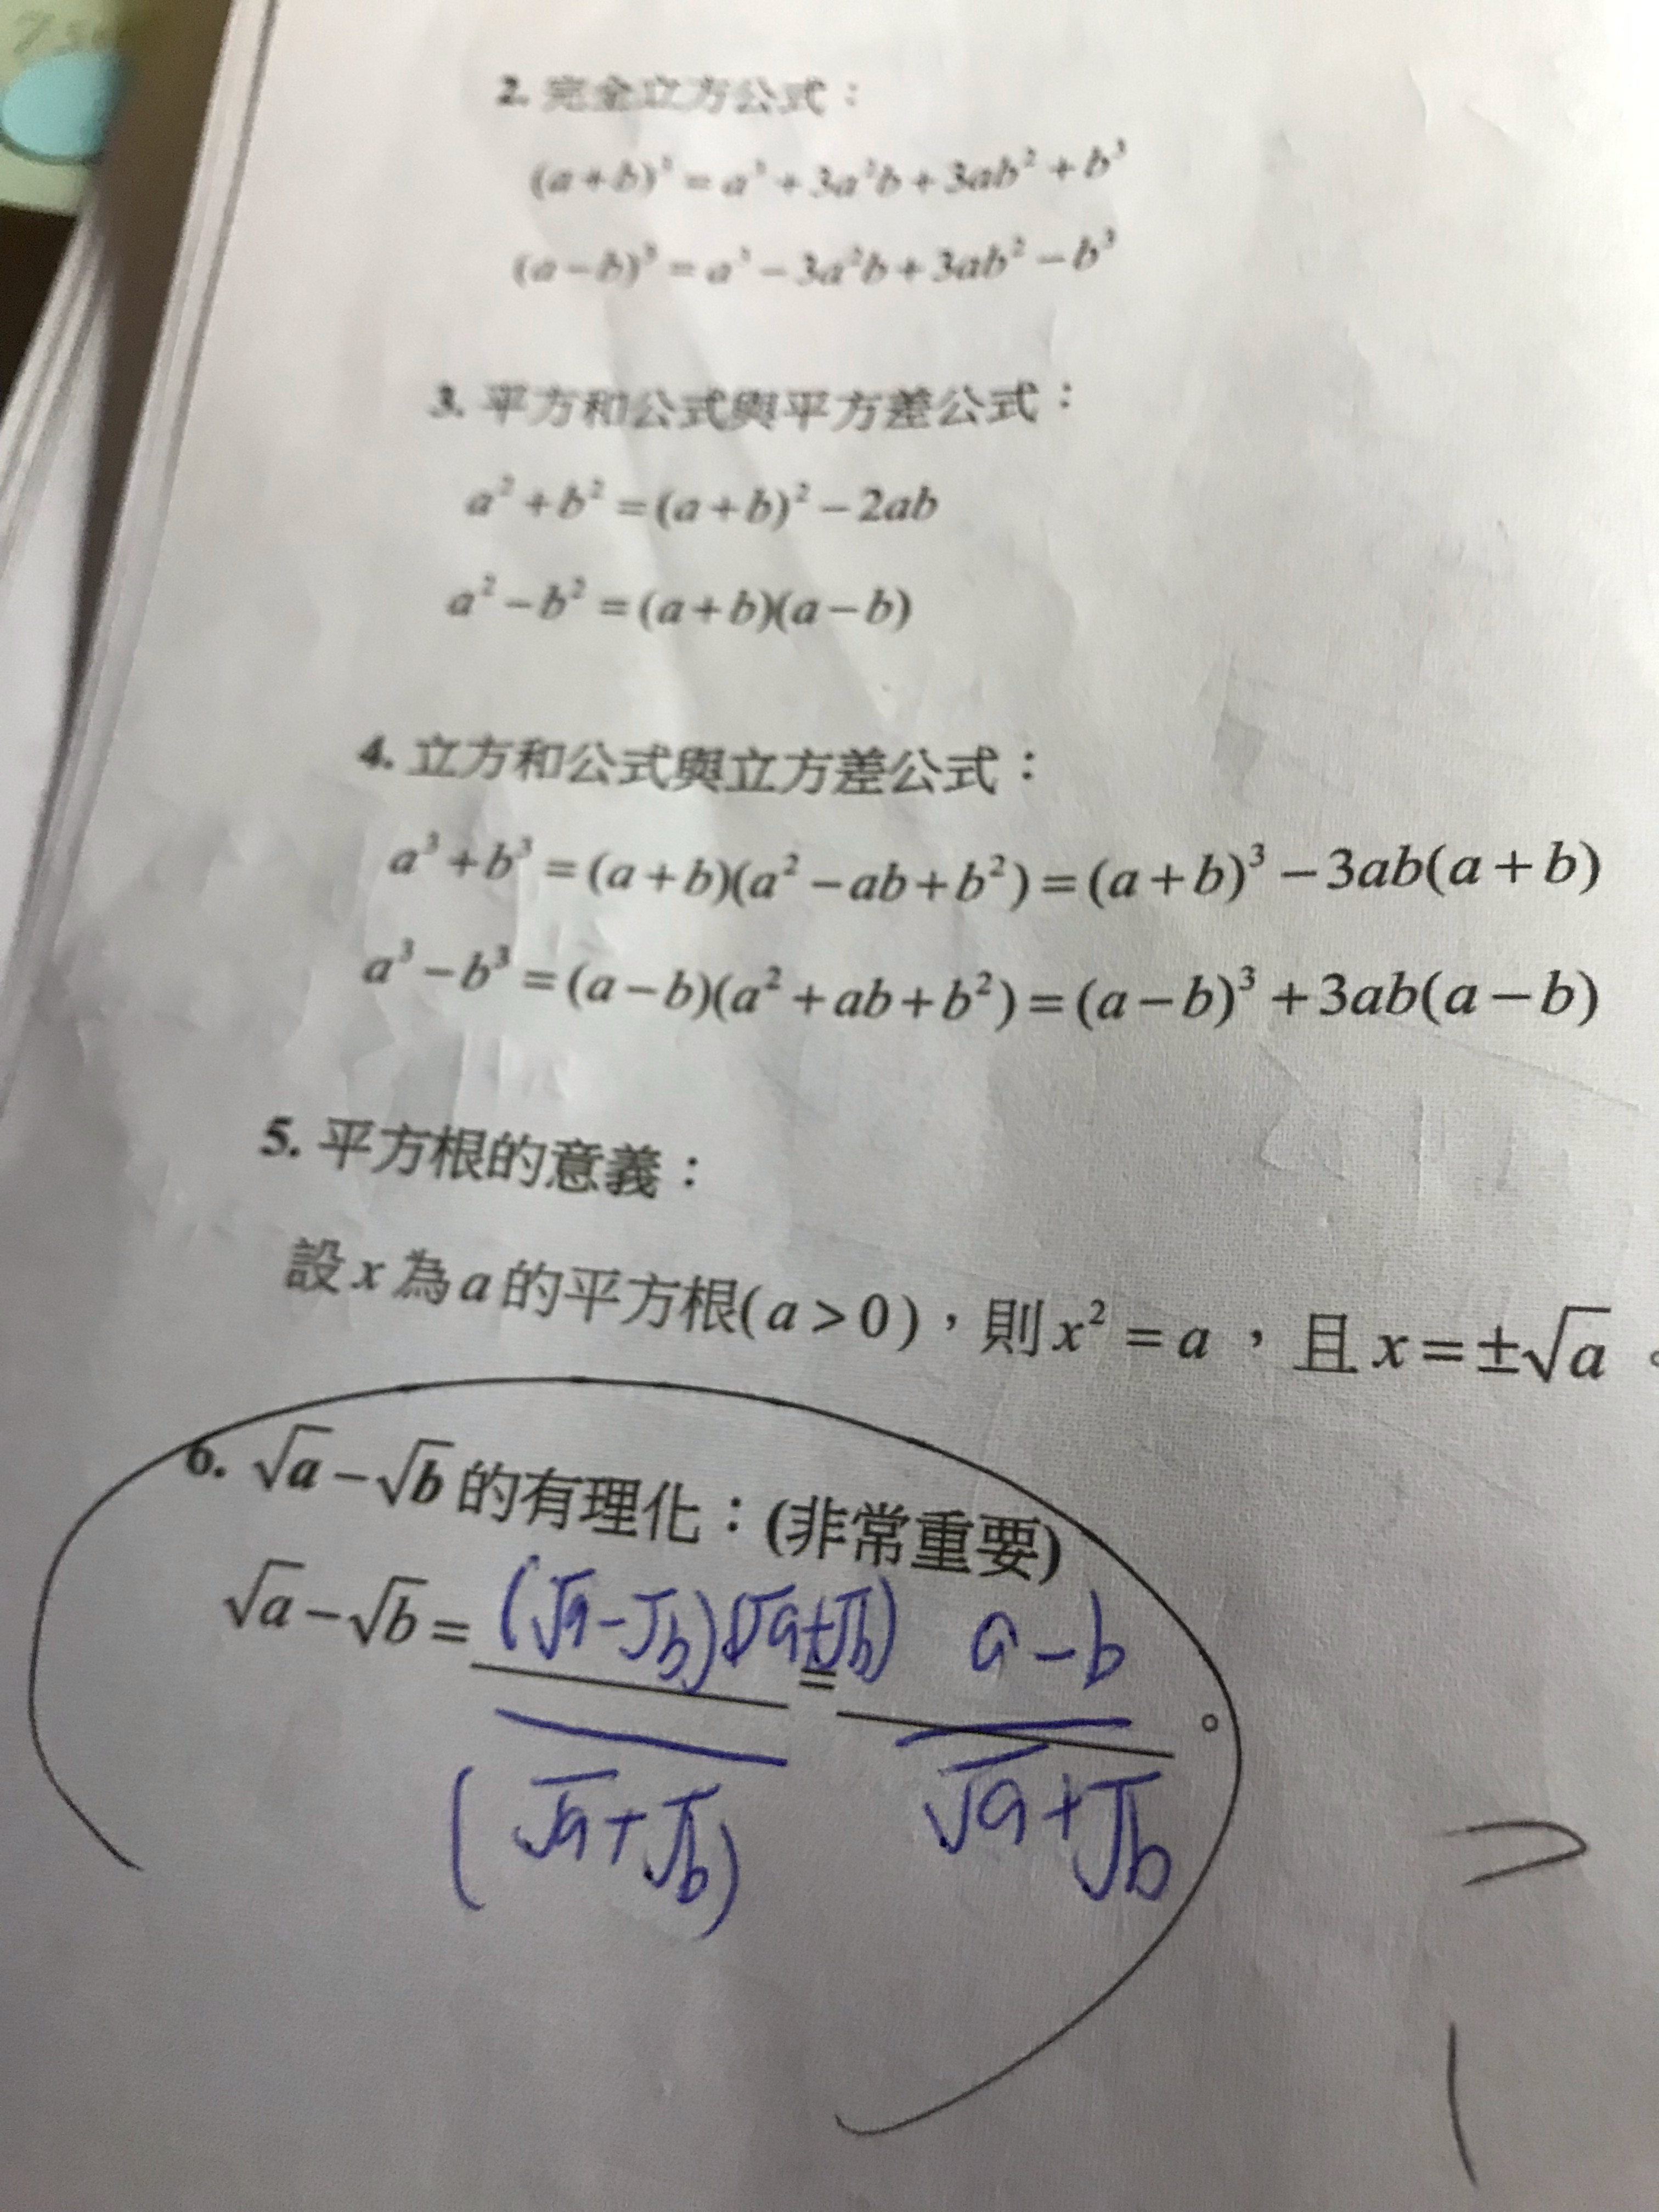 2. 完全立方公式：
(a+b)³ = a³ + 3a²b + 3ab² + b³
(a−b)³ = a³ − 3a²b + 3ab² − b³
3. 平方和公式與平方差公式：
a² + b² = (a+b)² − 2ab
a² − b² = (a+b)(a−b)
4. 立方和公式與立方差公式：
a³ + b³ = (a+b)(a² − ab + b²) = (a+b)³ − 3ab(a+b)
a³ − b³ = (a−b)(a² + ab + b²) = (a−b)³ + 3ab(a−b)
5. 平方根的意義：
設 x 為 a 的平方根(a > 0)，則 x² = a，且 x = ±√a。
6. √a − √b 的有理化：(非常重要)
√a − √b = (√a−√b)(√a+√b) = a−b 。
(√a+√b) √a+√b